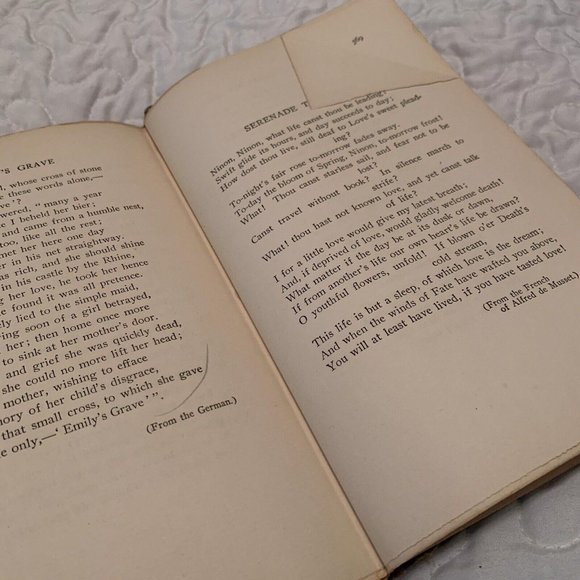 'S GRAVE
, whose cross of stone
e these words alone,—
ve'?
wered, "many a year
e I beheld her here;
and came from a humble nest,
too, like all the rest;
met her here one day
er in his net straightway.
was rich, and she should shine
in his castle by the Rhine,
ng her love, he took her hence
e found it was all pretence.
ely lied to the simple maid,
ring soon of a girl betrayed,
her; then home once more
to sink at her mother's door.
and grief she was quickly dead,
she could no more lift her head;
mother, wishing to efface
mory of her child's disgrace,
that small cross, to which she gave
e only,—' Emily's Grave '".
(From the German.)
369
SERENADE T
Ninon, Ninon, what life canst thou be leading?
Swift glide its hours, and day succeeds to day;
How dost thou live, still deaf to Love's sweet plead-
ing?
To-night's fair rose to-morrow fades away.
To-day the bloom of Spring, Ninon, to-morrow frost!
What! Thou canst starless sail, and fear not to be
lost?
Canst travel without book? In silence march to
strife?
What! thou hast not known love, and yet canst talk
of life?
I for a little love would give my latest breath;
And, if deprived of love, would gladly welcome death!
What matter if the day be at its dusk or dawn,
If from another's life our own heart's life be drawn?
O youthful flowers, unfold! If blown o'er Death's
cold stream,
This life is but a sleep, of which love is the dream;
And when the winds of Fate have wafted you above,
You will at least have lived, if you have tasted love!
(From the French
of Alfred de Musset.)